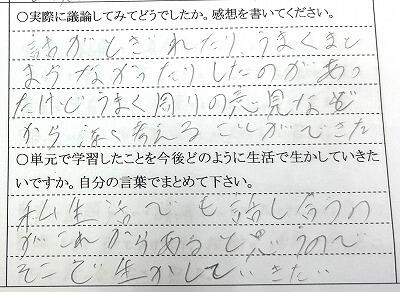 ○実際に議論してみてどうでしたか。感想を書いてください。
話がとぎれたりうまくまと
まらなかったりしたのがあっ
たけどうまく周りの意見なぞ
から深く考えることができた
○単元で学習したことを今後どのように生活で生かしていきた
いですか。自分の言葉でまとめて下さい。
私生活でも話し合うの
がこれからあると思うので
そこで生かしていきたい